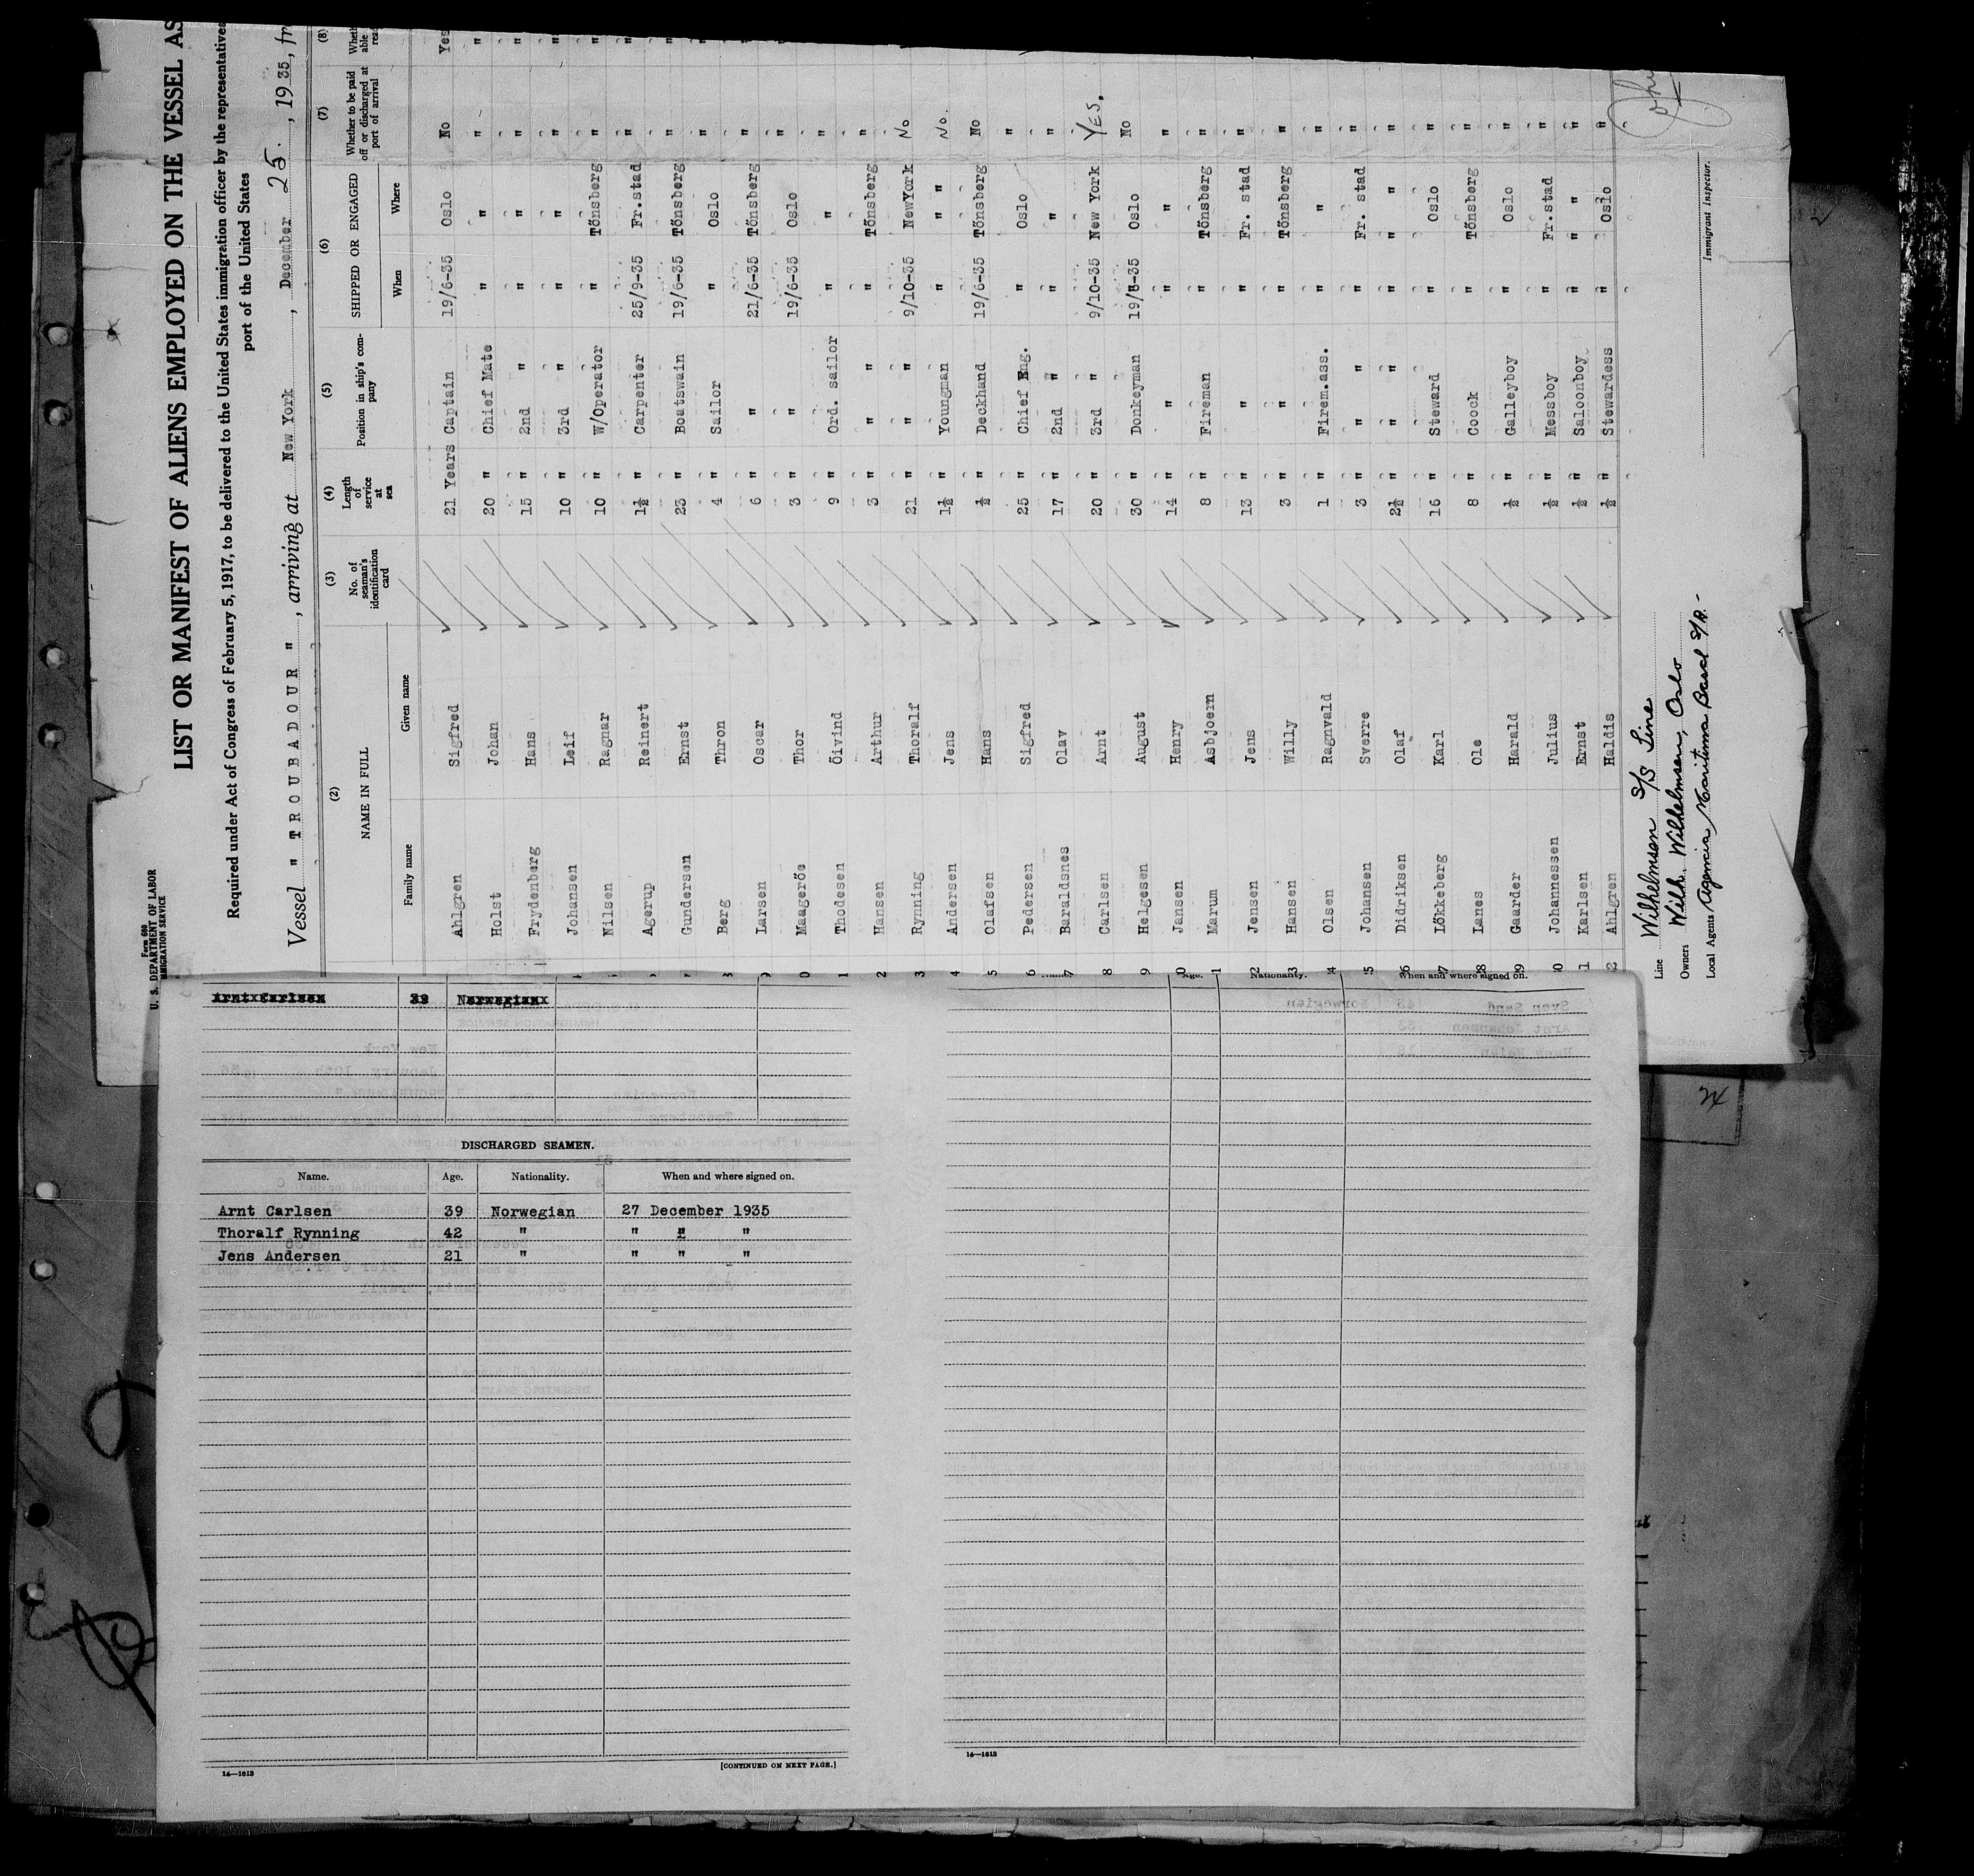 Form 680
U. S. DEPARTMENT OF LABOR
IMMIGRATION SERVICE
LIST OR MANIFEST OF ALIENS EMPLOYED ON THE VESSEL AS
Required under Act of Congress of February 5, 1917, to be delivered to the United States immigration officer by the representatives
port of the United States
Vessel " TROUBADOUR ", arriving at New York, December 25, 1935, fr
(2) (3) (4) (5) (6) (7) (8)
NAME IN FULL No. of seaman's identification card Length of service at sea Position in ship's company SHIPPED OR ENGAGED Whether to be paid off or discharged at port of arrival
Family name Given name When Where
Ahlgren Sigfred 21 Years Captain 19/6-35 Oslo No Yes
Holst Johan 20 " Chief Mate " " " "
Frydenberg Hans 15 " 2nd " " " " "
Johansen Leif 10 " 3rd " " " " "
Nilsen Ragnar 10 " W/Operator " Tönsberg " "
Agerup Reinert 1½ " Carpenter 25/9-35 Fr.stad " "
Gundersen Ernst 23 " Boatswain 19/6-35 Tönsberg " "
Berg Thron 4 " Sailor " Oslo " "
9 Larsen Oscar 6 " " 21/6-35 Tönsberg " "
0 Maageröe Thor 3 " " 19/6-35 Oslo " "
1 Thodesen Öivind 9 " Ord. sailor " " " "
2 Hansen Arthur 3 " " " " Tönsberg " "
3 Rynning Thoralf 21 " " " 9/10-35 NewYork No "
4 Andersen Jens 1½ " Youngman " " " No. "
5 Olafsen Hans ½ " Deckhand 19/6-35 Tönsberg No "
6 Pedersen Sigfred 25 " Chief Eng. " Oslo " "
7 Baraldsnes Olav 17 " 2nd " " " " "
8 Carlsen Arnt 20 " 3rd " 9/10-35 New York YES. "
9 Helgesen August 30 " Donkeyman 19/6-35 Oslo No "
0 Jansen Henry 14 " " " " " "
1 Marum Asbjoern 8 " Fireman " Tönsberg " "
22 Jensen Jens 13 " " " Fr. stad " "
23 Hansen Willy 3 " " " Tönsberg " "
24 Olsen Ragnvald 1 " Firem.ass. " " " "
25 Johansen Sverre 3 " " " " Fr. stad " "
26 Didriksen Olaf 2½ " " " " " " " "
27 Lökkeberg Karl 16 " Steward " Oslo " "
28 Lanes Ole 8 " Coock " Tönsberg " "
29 Gaarder Harald ½ " Galleyboy " Oslo " "
30 Johannessen Julius ½ " Messboy " Fr.stad " "
1 Karlsen Ernst ½ " Saloonboy " " " " "
2 Ahlgren Haldis ½ " Stewardess " Oslo " "
Line Wilhelmsen S/S Line
Owners Wilh. Wilhelmsen, Oslo
Local Agents Agencia Maritima
Immigrant Inspector.
Age. Nationality. When and where signed on.
Arnt Carlsen 39 Norwegian
DISCHARGED SEAMEN.
Name. Age. Nationality. When and where signed on.
Arnt Carlsen 39 Norwegian 27 December 1935
Thoralf Rynning 42 " " " "
Jens Andersen 21 " " " "
14—1613
[CONTINUED ON NEXT PAGE.]
14—1613
24